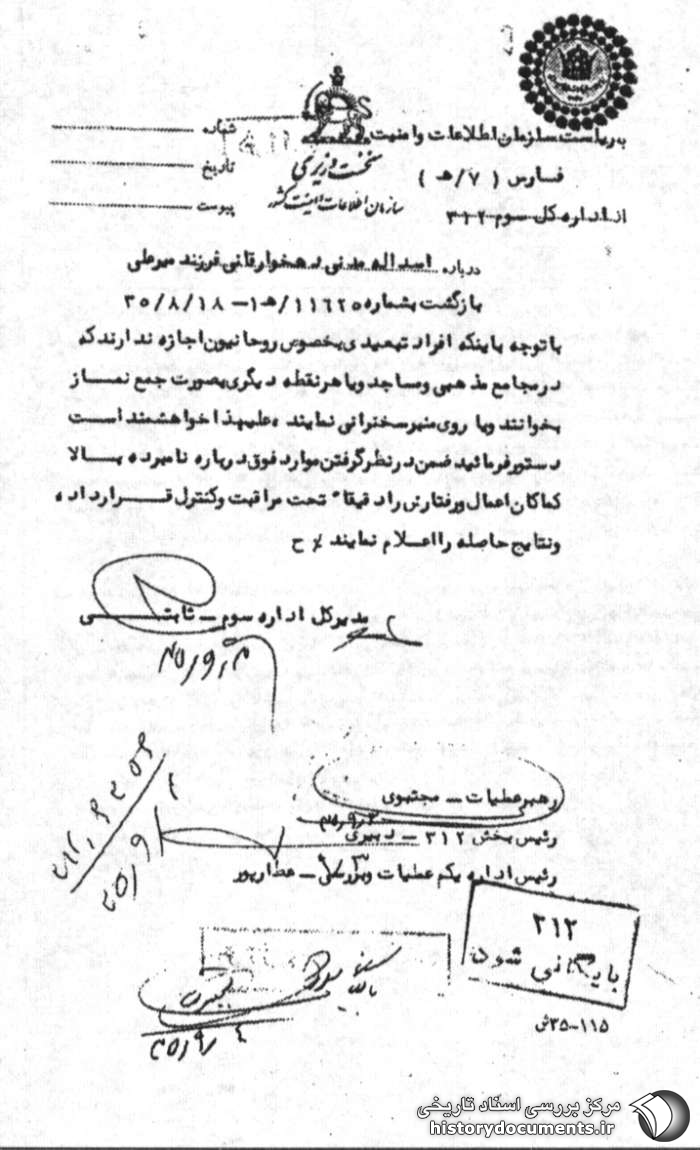 به ریاست سازمان اطلاعات وامنیت
فارس ( ۷/هـ )
از اداره کل سوم ۳۱۲
نخست وزیری
سازمان اطلاعات وامنیت کشور
شماره
تاریخ
پیوست
درباره اسداله مدنی دهخوارقانی فرزند میرعلی
بازگشت بشماره ۱۱۶۲۵/هـ۱– ۳۵/۸/۱۸
باتوجه باینکه افراد تبعیدی بخصوص روحانیون اجازه ندارند که
درمجامع مذهبی ومساجد ویا هرنقطه دیگری بصورت جمع نماز
بخوانند ویا روی منبر سخنرانی نمایند ،علیهذا خواهشمند است
دستور فرمائید ضمن درنظر گرفتن موارد فوق درباره نامبرده بالا
کماکان اعمال ورفتارش را دقیقا" تحت مراقبت وکنترل قرار داده
ونتایج حاصله را اعلام نمایند ٪ ح
مدیرکل اداره سوم – ثابتی
رهبر عملیات – مجتبوی
رئیس بخش ۳۱۲ – دبیری
رئیس اداره یکم عملیات وبررسی – عطارپور
۳۱۲
بایگانی شود
۱۱۵–۳۵ش
مرکز بررسی اسناد تاریخی
historydocuments.ir